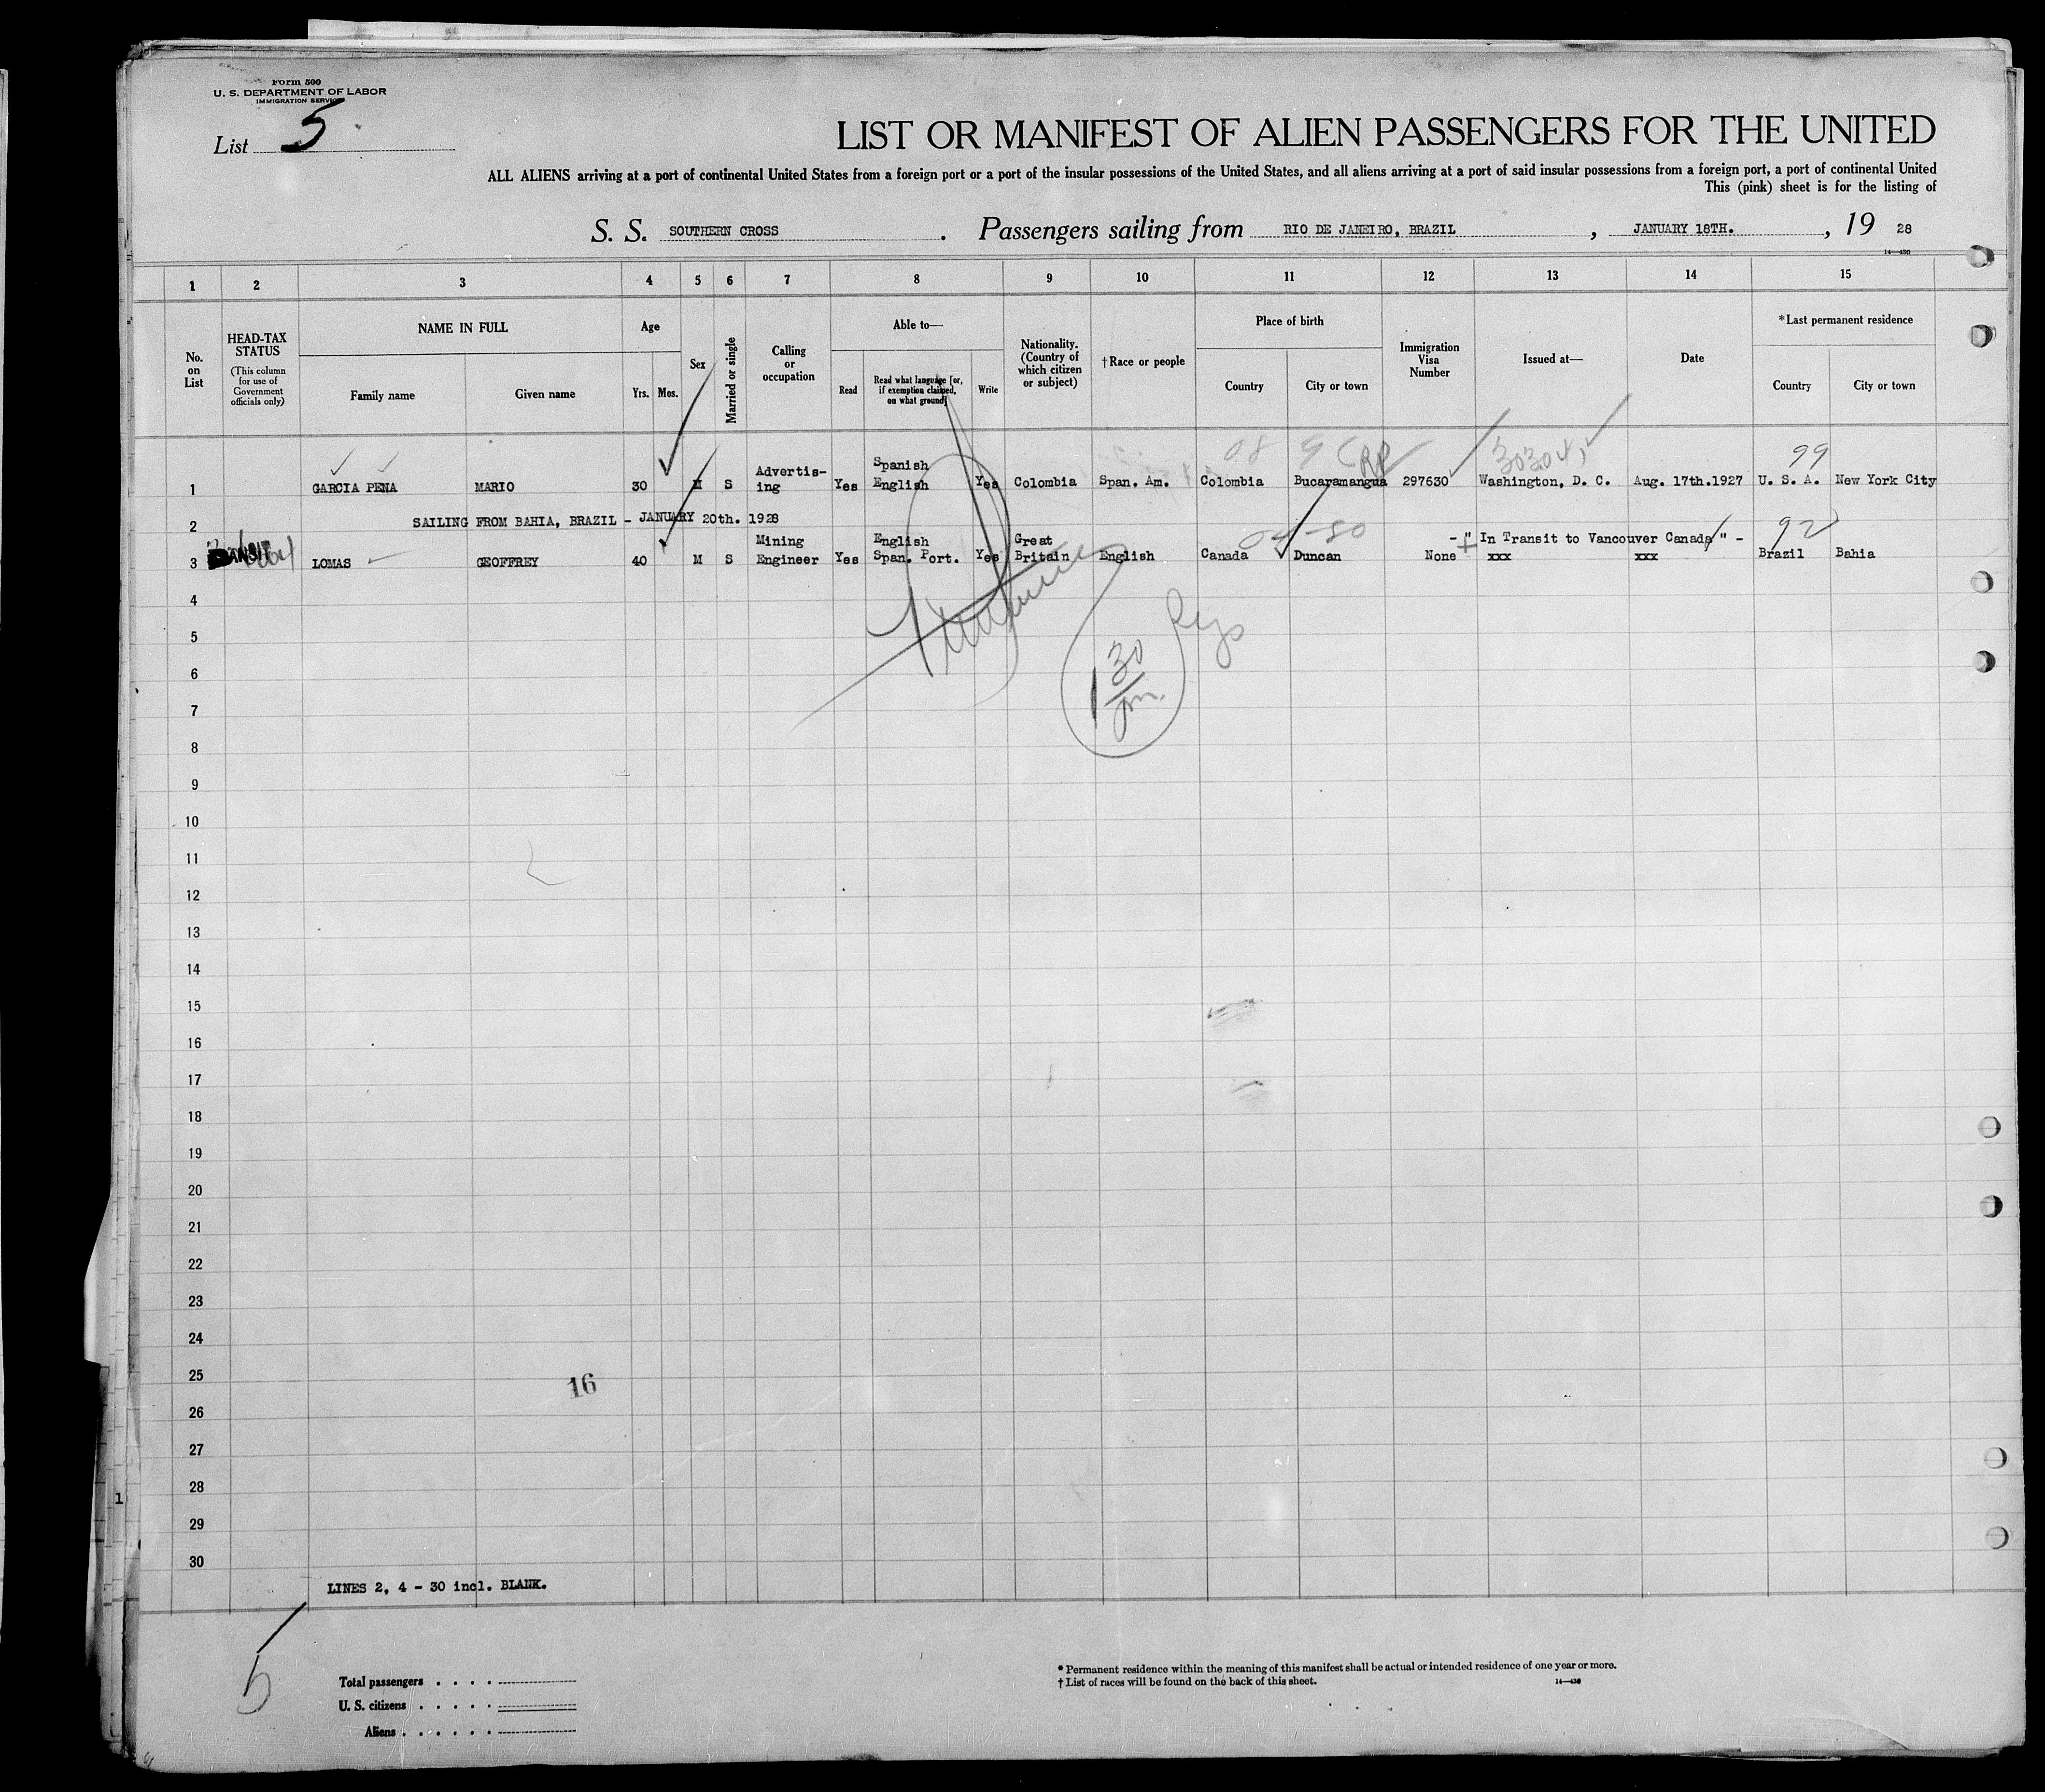 Form 500
U. S. DEPARTMENT OF LABOR
IMMIGRATION SERVICE
List 5
LIST OR MANIFEST OF ALIEN PASSENGERS FOR THE UNITED
ALL ALIENS arriving at a port of continental United States from a foreign port or a port of the insular possessions of the United States, and all aliens arriving at a port of said insular possessions from a foreign port, a port of continental United
This (pink) sheet is for the listing of
S. S. SOUTHERN CROSS. Passengers sailing from RIO DE JANEIRO, BRAZIL, JANUARY 18TH., 19 28
14—430
1 2 3 4 5 6 7 8 9 10 11 12 13 14 15
No. on List
HEAD-TAX STATUS (This column for use of Government officials only)
NAME IN FULL
Family name Given name
Age
Yrs. Mos.
Sex
Married or single
Calling or occupation
Able to—
Read
Read what language [or, if exemption claimed, on what ground]
Write
Nationality. (Country of which citizen or subject)
†Race or people
Place of birth
Country City or town
Immigration Visa Number
Issued at—
Date
*Last permanent residence
Country City or town
08 9 30304 99
1 GARCIA PENA MARIO 30 M S Advertising Yes Spanish English Yes Colombia Span. Am. Colombia Bucaramangua 297630 Washington, D. C. Aug. 17th.1927 U. S. A. New York City
2 SAILING FROM BAHIA, BRAZIL - JANUARY 20th. 1928
04-80 92
3 LOMAS GEOFFREY 40 M S Mining Engineer Yes English Span. Port. Yes Great Britain English Canada Duncan None - " In Transit to Vancouver Canada " - xxx xxx Brazil Bahia
4
5
6
1 30 pm.
7
8
9
10
11
12
13
14
15
16
17
18
19
20
21
22
23
24
25
16
26
27
28
29
30
LINES 2, 4 - 30 incl. BLANK.
5
Total passengers
U. S. citizens
Aliens
* Permanent residence within the meaning of this manifest shall be actual or intended residence of one year or more.
† List of races will be found on the back of this sheet.
14—430
1